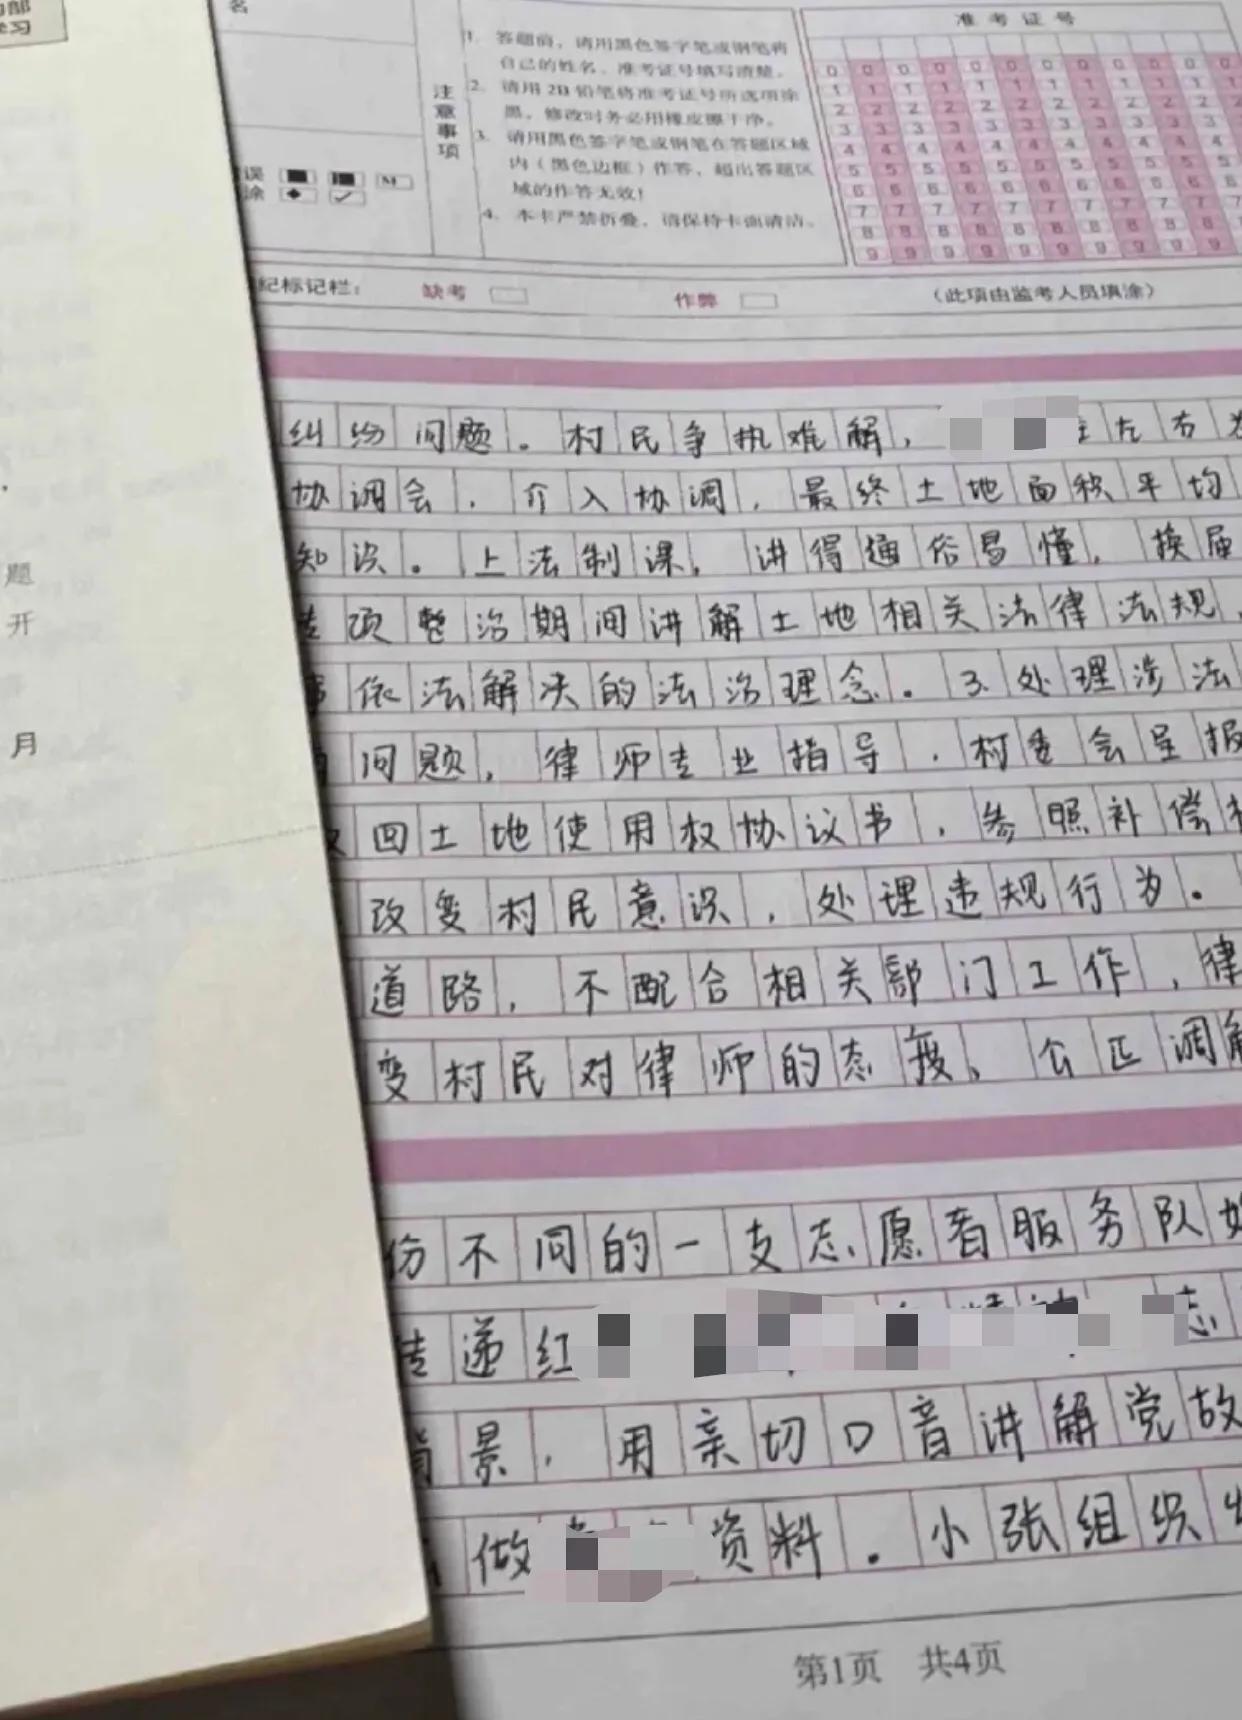 学习
题
开
月
名
注意事项
1. 答题前，请用黑色签字笔或钢笔将
自己的姓名、准考证号填写清楚。
2. 请用2B铅笔将准考证号所选项涂
黑，修改时务必用橡皮擦干净。
3. 请用黑色签字笔或钢笔在答题区域
内（黑色边框）作答，超出答题区
域的作答无效！
4. 本卡严禁折叠，请保持卡面清洁。
误
涂
准考证号
0 0 0 0 0 0 0 0 0 0 0 0
1 1 1 1 1 1 1 1 1 1 1 1
2 2 2 2 2 2 2 2 2 2 2 2
3 3 3 3 3 3 3 3 3 3 3 3
4 4 4 4 4 4 4 4 4 4 4 4
5 5 5 5 5 5 5 5 5 5 5 5
6 6 6 6 6 6 6 6 6 6 6 6
7 7 7 7 7 7 7 7 7 7 7 7
8 8 8 8 8 8 8 8 8 8 8 8
9 9 9 9 9 9 9 9 9 9 9 9
纪标记栏： 缺考 作弊 （此项由监考人员填涂）
纠纷问题。村民争执难解， 左右
协调会，介入协调，最终土地面积平均
知识。上法制课，讲得通俗易懂，换届
项整治期间讲解土地相关法律法规，
依法解决的法治理念。3.处理涉法
问题，律师专业指导，村委会呈报
回土地使用权协议书，参照补偿
改变村民意识，处理违规行为。
道路，不配合相关部门工作，律
变村民对律师的态度、公正调解
份不同的一支志愿者服务队
传递红 志
背景，用亲切口音讲解党故
做 资料。小张组织
第1页 共4页